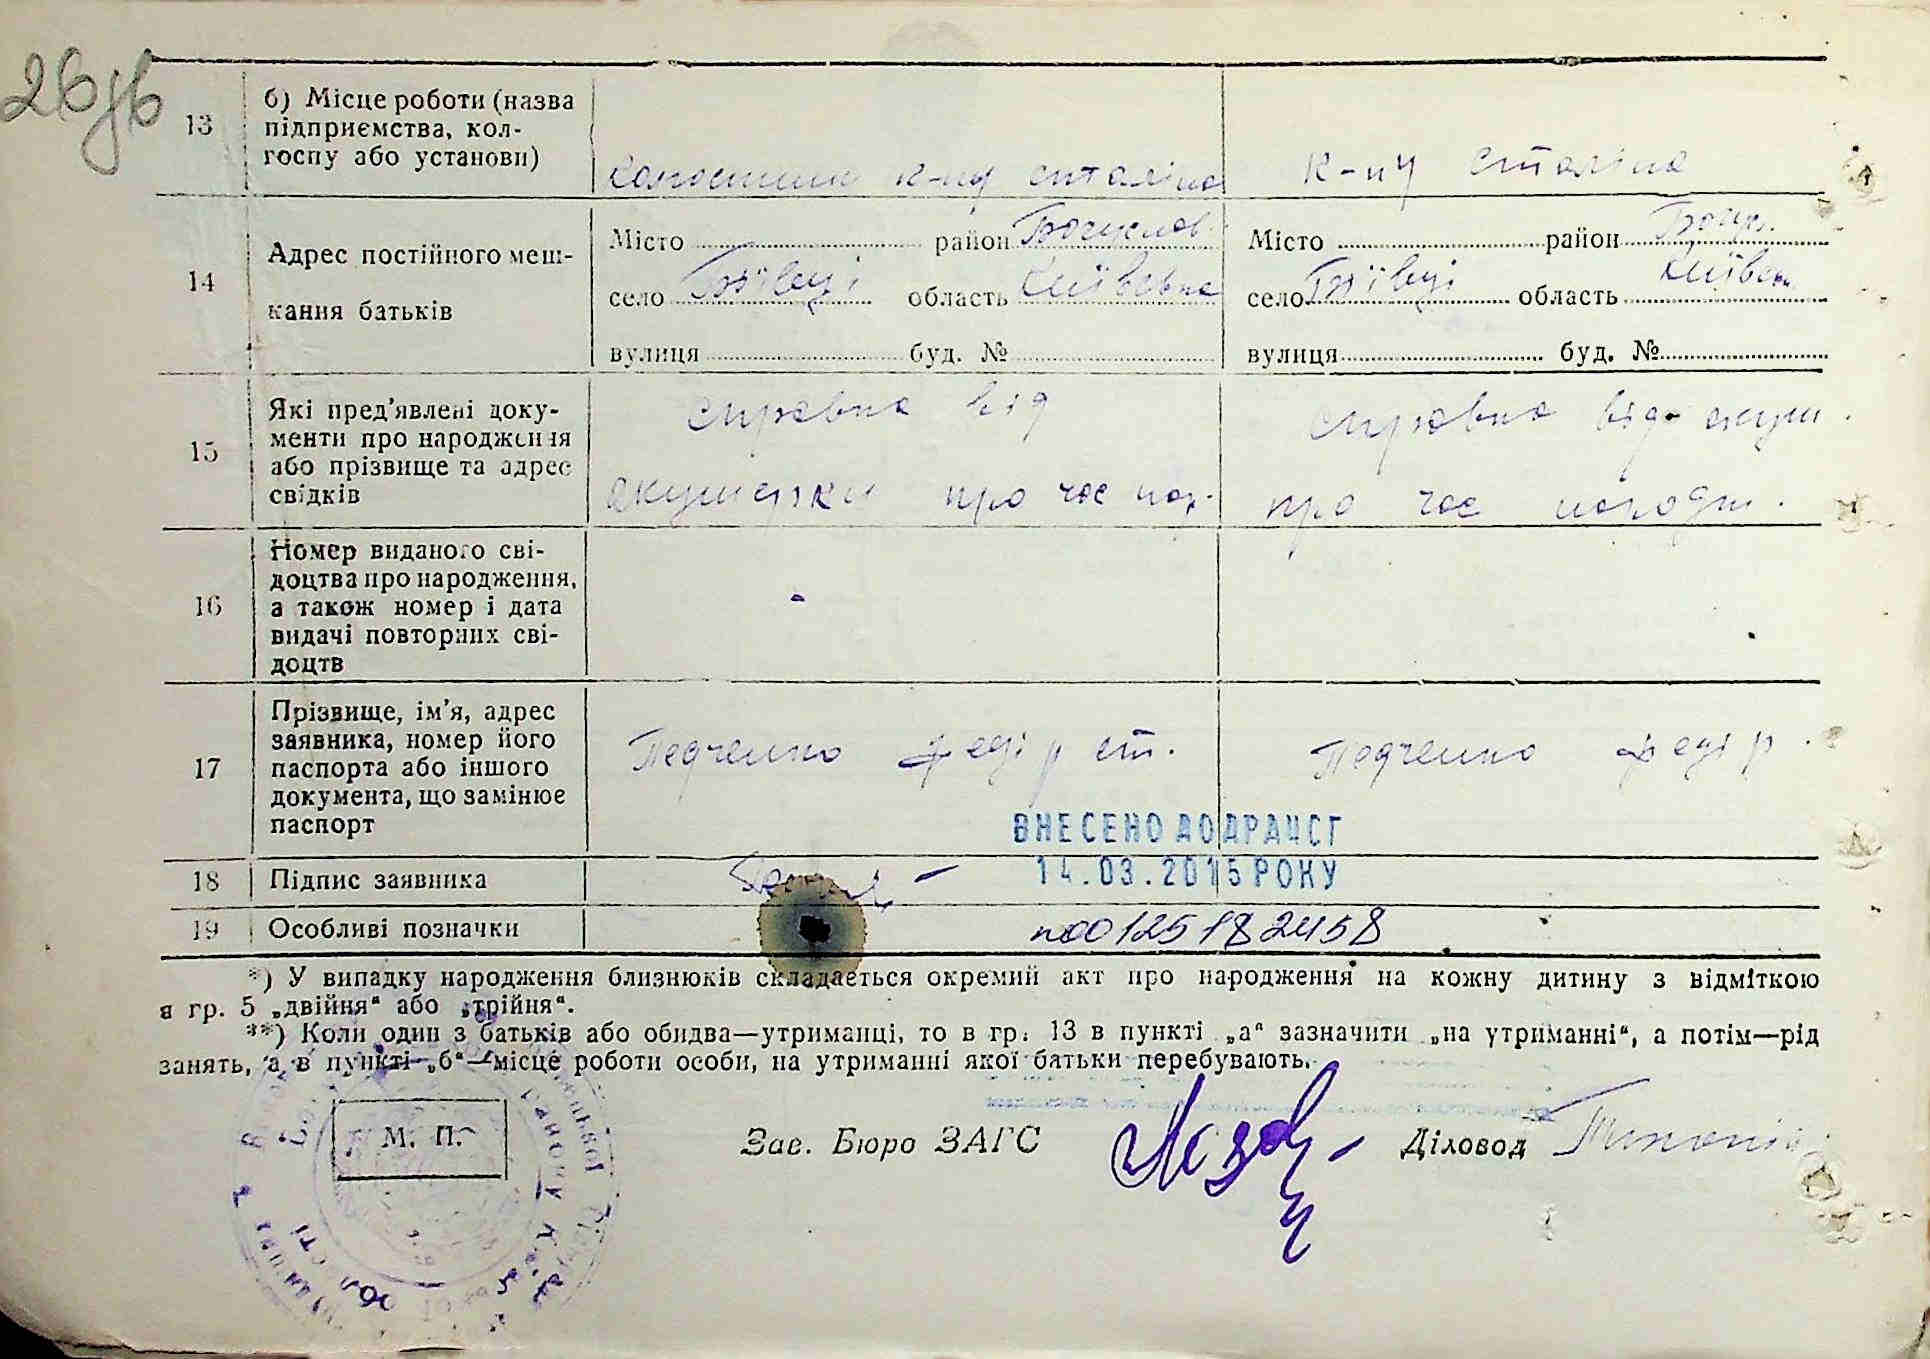 26
13
б) Місце роботи (назва
підприємства, кол-
госпу або установи)
к-пу сталіна
к-пу сталіна
14
Адрес постійного меш-
кання батьків
Місто район Богуслов.
село Бзівці область Київська
вулиця буд. №
Місто район Богус.
село Бзівці область Київськ.
вулиця буд. №
15
Які пред'явлені доку-
менти про народження
або прізвище та адрес
свідків
справка від
акушерки про час нар.
справка від акуш.
про час народж.
16
Номер виданого сві-
доцтва про народження,
а також номер і дата
видачі повторних сві-
доцтв
17
Прізвище, ім'я, адрес
заявника, номер його
паспорта або іншого
документа, що замінює
паспорт
Педченко федір ст.
Педченко федір
ВНЕСЕНО ДО ДРАЦСГ
14.03.2015 РОКУ
18
Підпис заявника
19
Особливі позначки
п00125182458
*) У випадку народження близнюків складається окремий акт про народження на кожну дитину з відміткою
в гр. 5 „двійня“ або „трійня“.
**) Коли один з батьків або обидва—утриманці, то в гр. 13 в пункті „а“ зазначити „на утриманні“, а потім—рід
занять, а в пункті „б“—місце роботи особи, на утриманні якої батьки перебувають.
М. П.
Зав. Бюро ЗАГС
Діловод